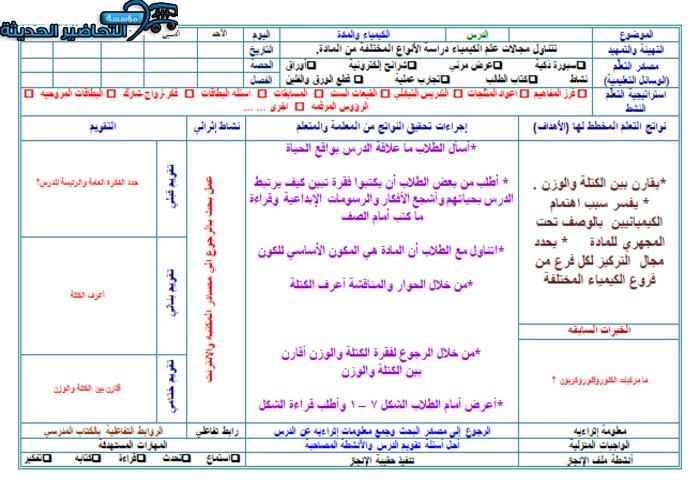 مؤسسة
التحاضير الحديثة
الموضوع
الدرس
الكيمياء والمادة
اليوم
الأحد
التهيئة والتمهيد
تتناول مجالات علم الكيمياء دراسة الأنواع المختلفة من المادة.
التاريخ
مصادر التعلم
(الوسائل التعليمية)
سبورة ذكية عرض مرئي شرائح إلكترونية أوراق
نشاط كتاب الطالب تجارب عملية قطع الورق والفلين
الحصة
الفصل
استراتيجية التعلم
النشط
فرز المفاهيم اعواد المثلجات التدريس التبادلي القبعات الست المسابقات اسئله البطاقات فكر-زواج-شارك البطاقات المروحيه
الرؤوس المرقمه اخرى ... ...
نواتج التعلم المخطط لها (الأهداف)
إجراءات تحقيق النواتج من المعلمة والمتعلم
نشاط إثرائي
التقويم
*يقارن بين الكتلة والوزن .
* يفسر سبب اهتمام
الكيميائيين بالوصف تحت
المجهري للمادة * يحدد
مجال التركيز لكل فرع من
فروع الكيمياء المختلفة
الخبرات السابقه
ما مركبات الكلوروفلوروكربون ؟
*أسأل الطلاب ما علاقة الدرس بواقع الحياة
* أطلب من بعض الطلاب أن يكتبوا فقرة تبين كيف يرتبط
الدرس بحياتهم وأشجع الأفكار والرسومات الإبداعية وقراءة
ما كتب أمام الصف
*اتناول مع الطلاب أن المادة هي المكون الأساسي للكون
*من خلال الحوار والمناقشة أعرف الكتلة
*من خلال الرجوع لفقرة الكتلة والوزن أقارن
بين الكتلة والوزن
*أعرض أمام الطلاب الشكل ٧ – ١ وأطلب قراءة الشكل
عمل بحث بالرجوع الي مصادر المكتبه والانترنت
تقويم قبلي
حدد الفكرة العامة والرئيسة للدرس؟
تقويم بنائي
أعرف الكتلة
تقويم ختامي
أقارن بين الكتلة والوزن
معلومة إثراءيه
الرجوع إلى مصادر البحث وجمع معلومات إثراءيه عن الدرس
رابط تفاعلي
الروابط التفاعلية بالكتاب المدرسي
الواجبات المنزلية
أحل أسئلة تقويم الدرس والأنشطة المصاحبة
المهارات المستهدفة
أنشطة ملف الإنجاز
تنفيذ حقيبة الإنجاز
استماع تحدث قراءة كتابه تفكير